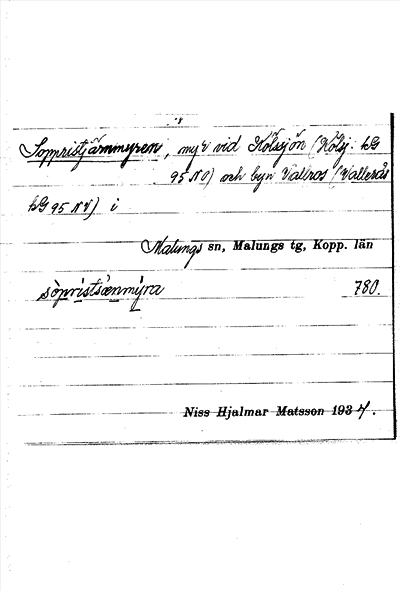 Soppristjärnmyren, myr vid Kölsjön (Kölsj: kG
95 NO) och byn Vallros (Vallerås
kG 95 NV) i
Malungs sn, Malungs tg, Kopp. län
780.
Niss Hjalmar Matsson 1934.